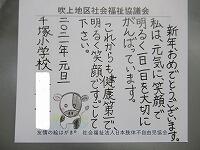 吹上地区社会福祉協議会
新年おめでとうございます。
私は、元気に笑顔で
明るく一日一日を大切に
がんばっています。
これからも健康第一で
明るく笑顔ですごして
下さい。
二〇二一年 元旦
千塚小学校
友情の絵はがき 社会福祉法人日本肢体不自由児協会